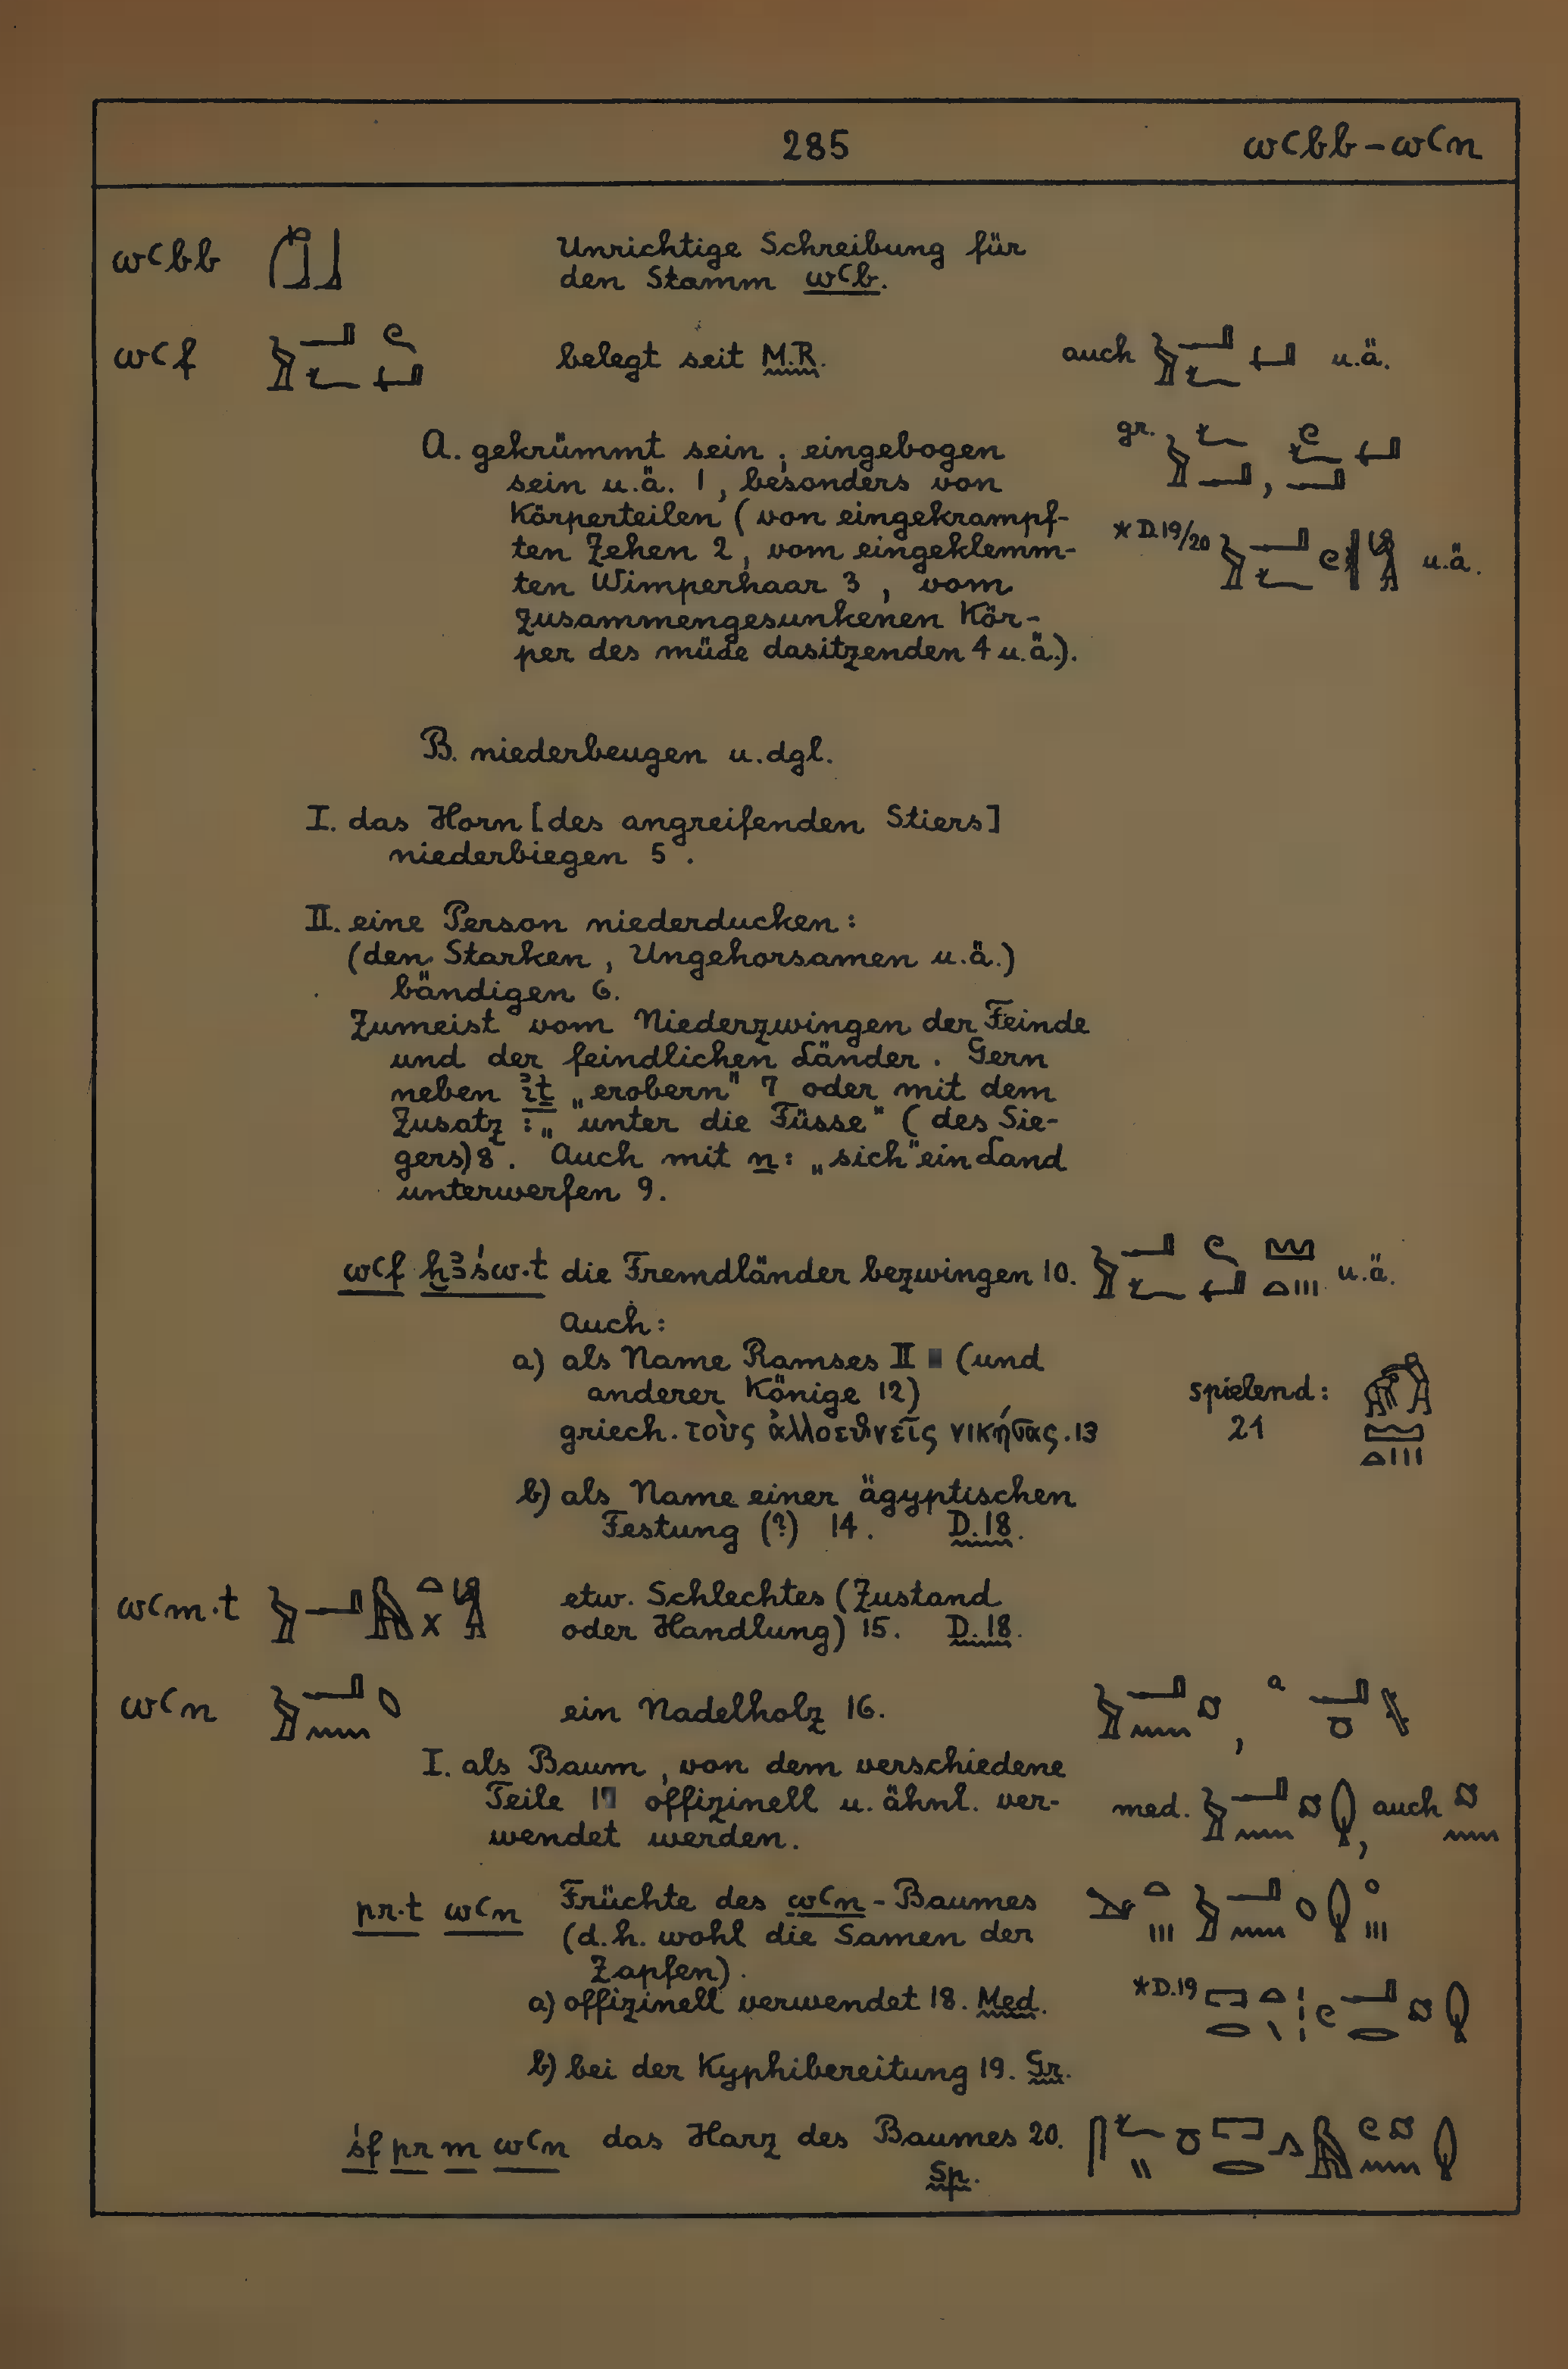 285 wꜥbb – wꜥn
wꜥbb Unrichtige Schreibung für
den Stamm wꜥb.
wꜥf belegt seit M.R. auch u.ä.
A. gekrümmt sein, eingebogen gr. ,
sein u.ä. 1, besonders von
Körperteilen (von eingekrampf-
ten Zehen 2, vom eingeklemm- *D.19/20 u.ä.
ten Wimperhaar 3, vom
zusammengesunkenen Kör-
per des müde dasitzenden 4 u.ä.).
B. niederbeugen u.dgl.
I. das Horn [des angreifenden Stiers]
niederbiegen 5.
II. eine Person niederducken:
(den Starken, Ungehorsamen u.ä.)
bändigen 6.
Zumeist vom Niederzwingen der Feinde
und der feindlichen Länder. Gern
neben iṯ „erobern" 7 oder mit dem
Zusatz: „unter die Füsse" (des Sie-
gers) 8. Auch mit n: „sich" ein Land
unterwerfen 9.
wꜥf ḫꜣśw.t die Fremdländer bezwingen 10. u.ä.
Auch:
a) als Name Ramses II (und
anderer Könige 12) spielend:
griech. τοὺς ἀλλοεθνεῖς νικήσας. 13 21
b) als Name einer ägyptischen
Festung (?) 14. D.18.
wꜥm.t etw. Schlechtes (Zustand
oder Handlung) 15. D.18.
wꜥn ein Nadelholz 16. ,
I. als Baum, von dem verschiedene
Teile offizinell u. ähnl. ver- med. , auch
wendet werden.
pr.t wꜥn Früchte des wꜥn-Baumes
(d.h. wohl die Samen der
Zapfen).
a) offizinell verwendet 18. Med. *D.19
b) bei der Kyphibereitung 19. Gr.
śf pr m wꜥn das Harz des Baumes 20.
Sp.